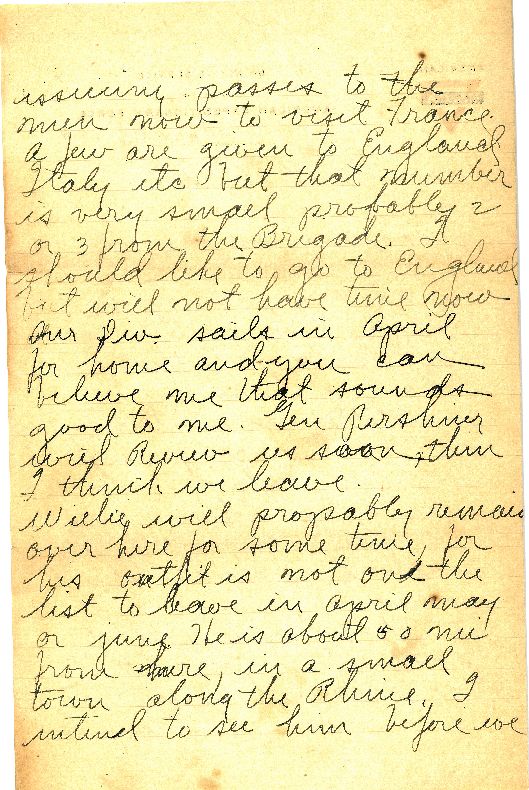 issuing passes to the
men now to visit France.
A few are given to England
Italy etc but that number
is very small probably 2
or 3 from the Brigade. I
should like to go to England
but will not have time now
Our Div. sails in April
for home and you can
believe me that sounds
good to me. Gen Pershner
will Review us soon, then
I think we leave.
Willie will propably remain
over here for some time, for
his outfit is not on the
list to leave in April may
or june He is about 50 mi
from here, in a small
town along the Rhine. I
intend to see him before we